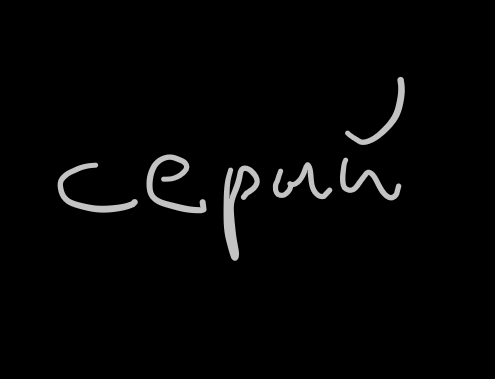 серый